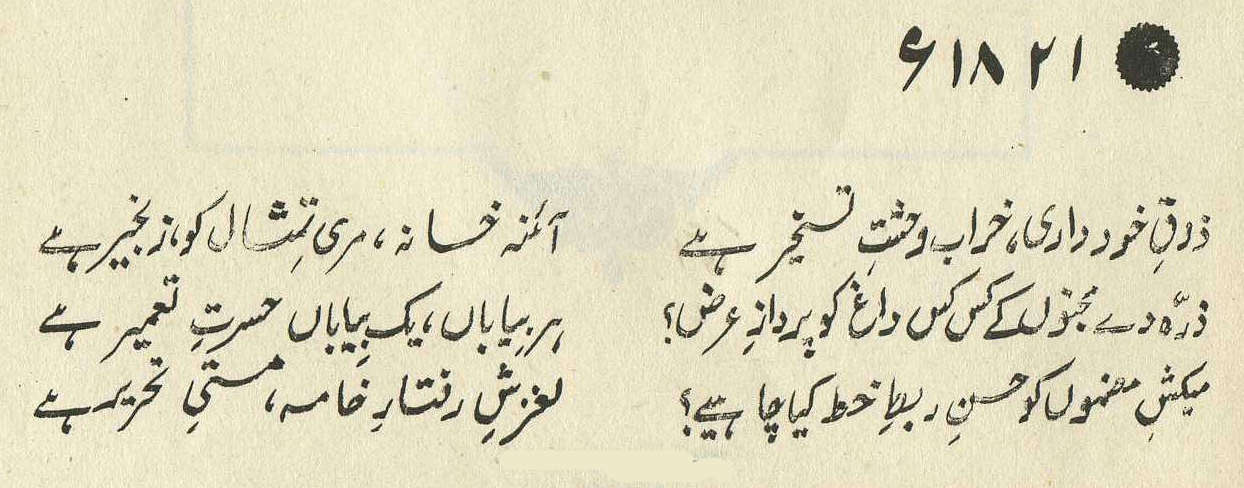 ۱۸۲۱ء
ذوقِ خود داری، خرابِ وحشتِ تسخیر ہے آئنہ خسانہ، مری تمثال کو، زنجیر ہے
ذرّہ دے مجنوں کے کس کس داغ کو پردازِ عرض؟ ہر بیاباں، یک بیاباں حسرتِ تعمیر ہے
میکشِ مضموں کو حسنِ ربطِ خط کیا چاہیے؟ لغزشِ رفتارِ خامہ، مستیِ تحریر ہے